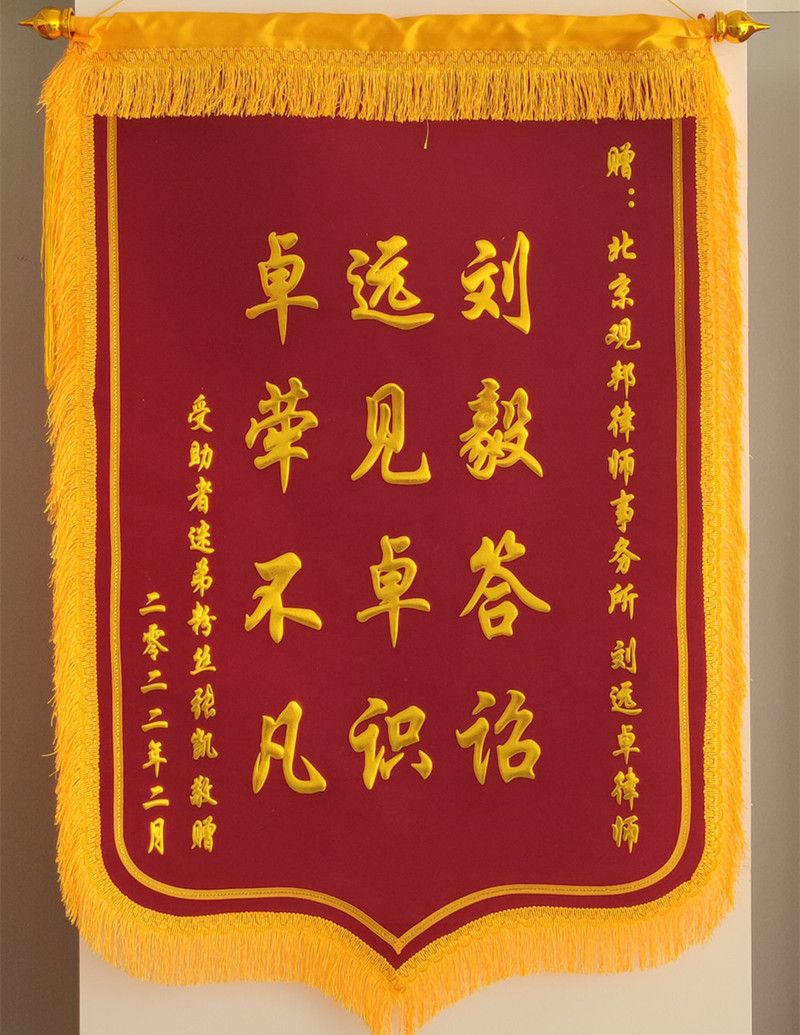 赠：北京观邦律师事务所 刘远卓律师
刘毅答诏
远见卓识
卓荦不凡
受助者迷弟粉丝张凯敬赠
二零二二年二月